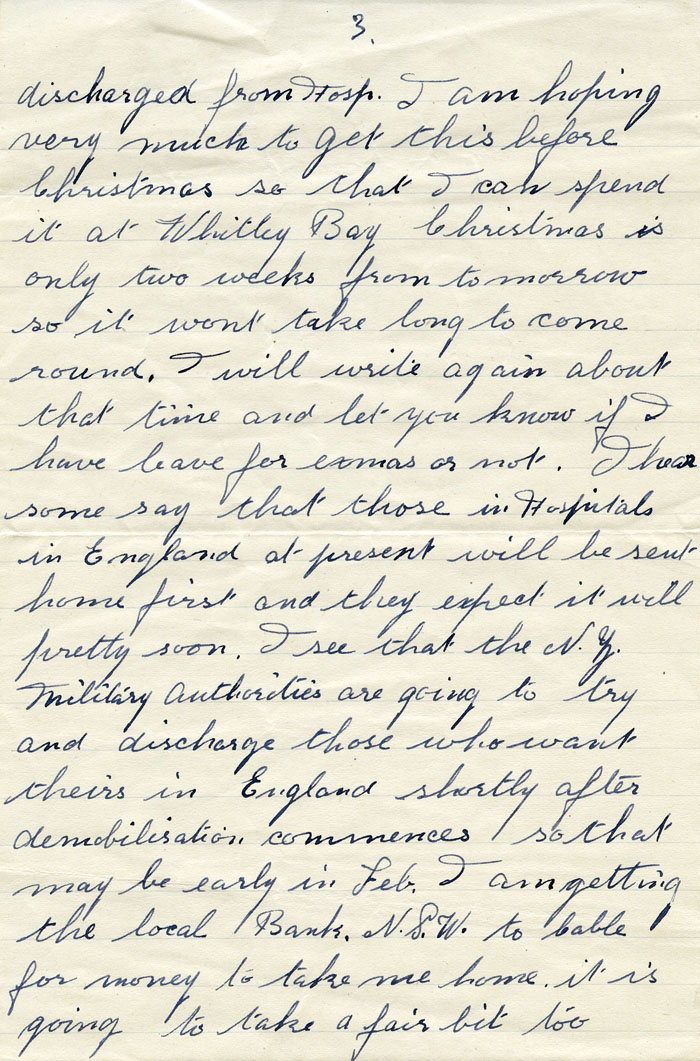 3.
discharged from Hosp. I am hoping
very much to get this before
Christmas so that I can spend
it at Whitley Bay Christmas is
only two weeks from tomorrow
so it wont take long to come
round. I will write again about
that time and let you know if I
have leave for exmas or not. I hear
some say that those in Hospitals
in England at present will be sent
home first and they expect it will
pretty soon. I see that the N.Z.
Military Authorities are going to try
and discharge those who want
theirs in England shortly after
demobilisation commences so that
may be early in Feb. I am getting
the local Bank. N.S.W. to cable
for money to take me home. it is
going to take a fair bit too